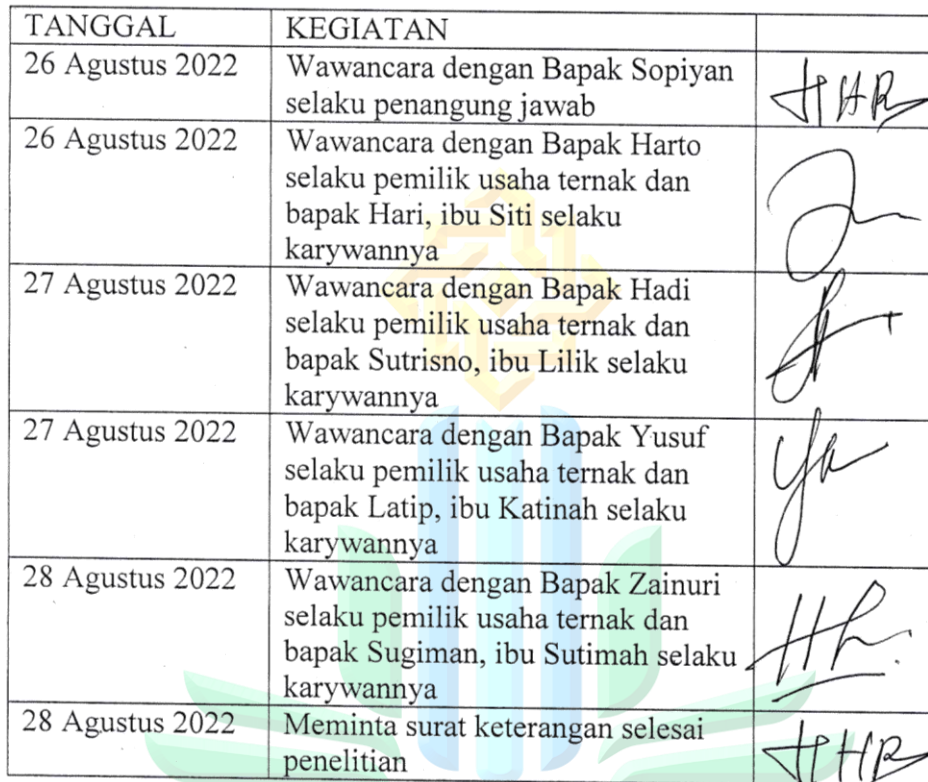 TANGGAL KEGIATAN
26 Agustus 2022 Wawancara dengan Bapak Sopiyan
selaku penangung jawab
26 Agustus 2022 Wawancara dengan Bapak Harto
selaku pemilik usaha ternak dan
bapak Hari, ibu Siti selaku
karywannya
27 Agustus 2022 Wawancara dengan Bapak Hadi
selaku pemilik usaha ternak dan
bapak Sutrisno, ibu Lilik selaku
karywannya
27 Agustus 2022 Wawancara dengan Bapak Yusuf
selaku pemilik usaha ternak dan
bapak Latip, ibu Katinah selaku
karywannya
28 Agustus 2022 Wawancara dengan Bapak Zainuri
selaku pemilik usaha ternak dan
bapak Sugiman, ibu Sutimah selaku
karywannya
28 Agustus 2022 Meminta surat keterangan selesai
penelitian